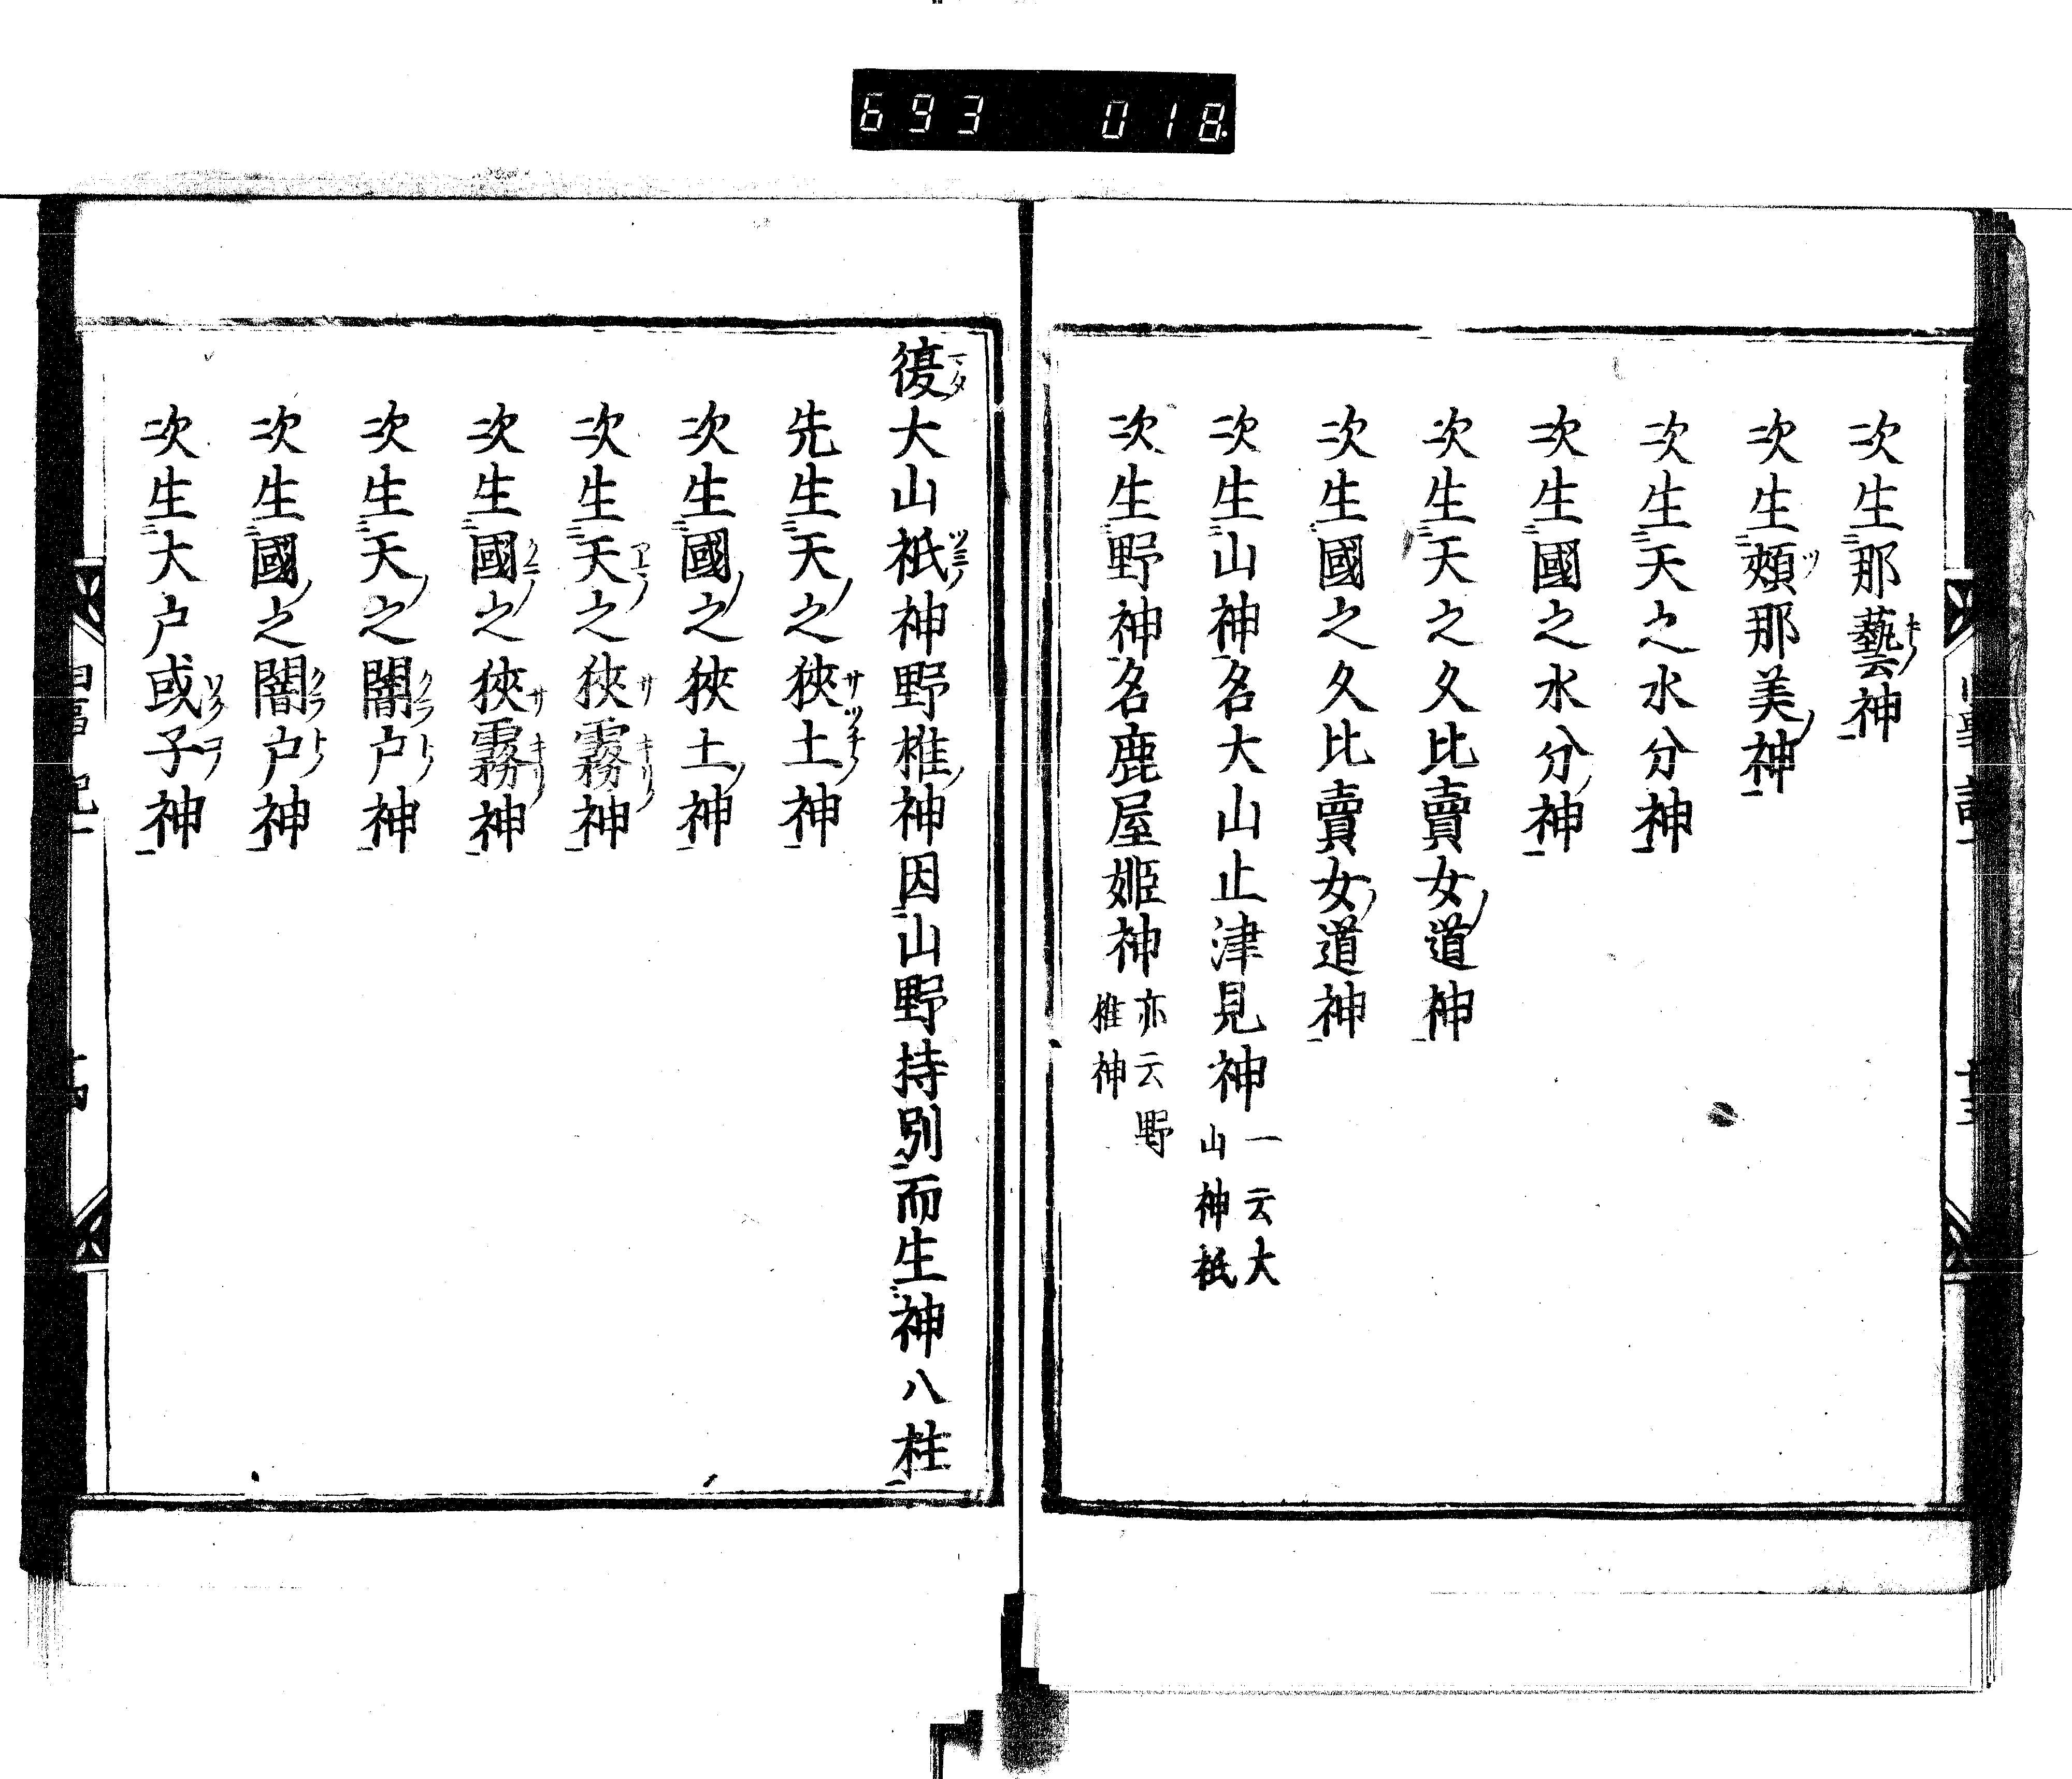 693 018
次生那藝神
次生頬那美神
次生天之水分神
次生國之水分神
次生天之久比賣女道神
次生國之久比賣女道神
次生山神名大山止津見神 一云大山神祇
次生野神名鹿屋姬神 亦云野椎神
復大山祇神野椎神因山野持別而生神八柱
先生天之狹土神
次生國之狹土神
次生天之狹霧神
次生國之狹霧神
次生天之闇戸神
次生國之闇戸神
次生大戸或子神